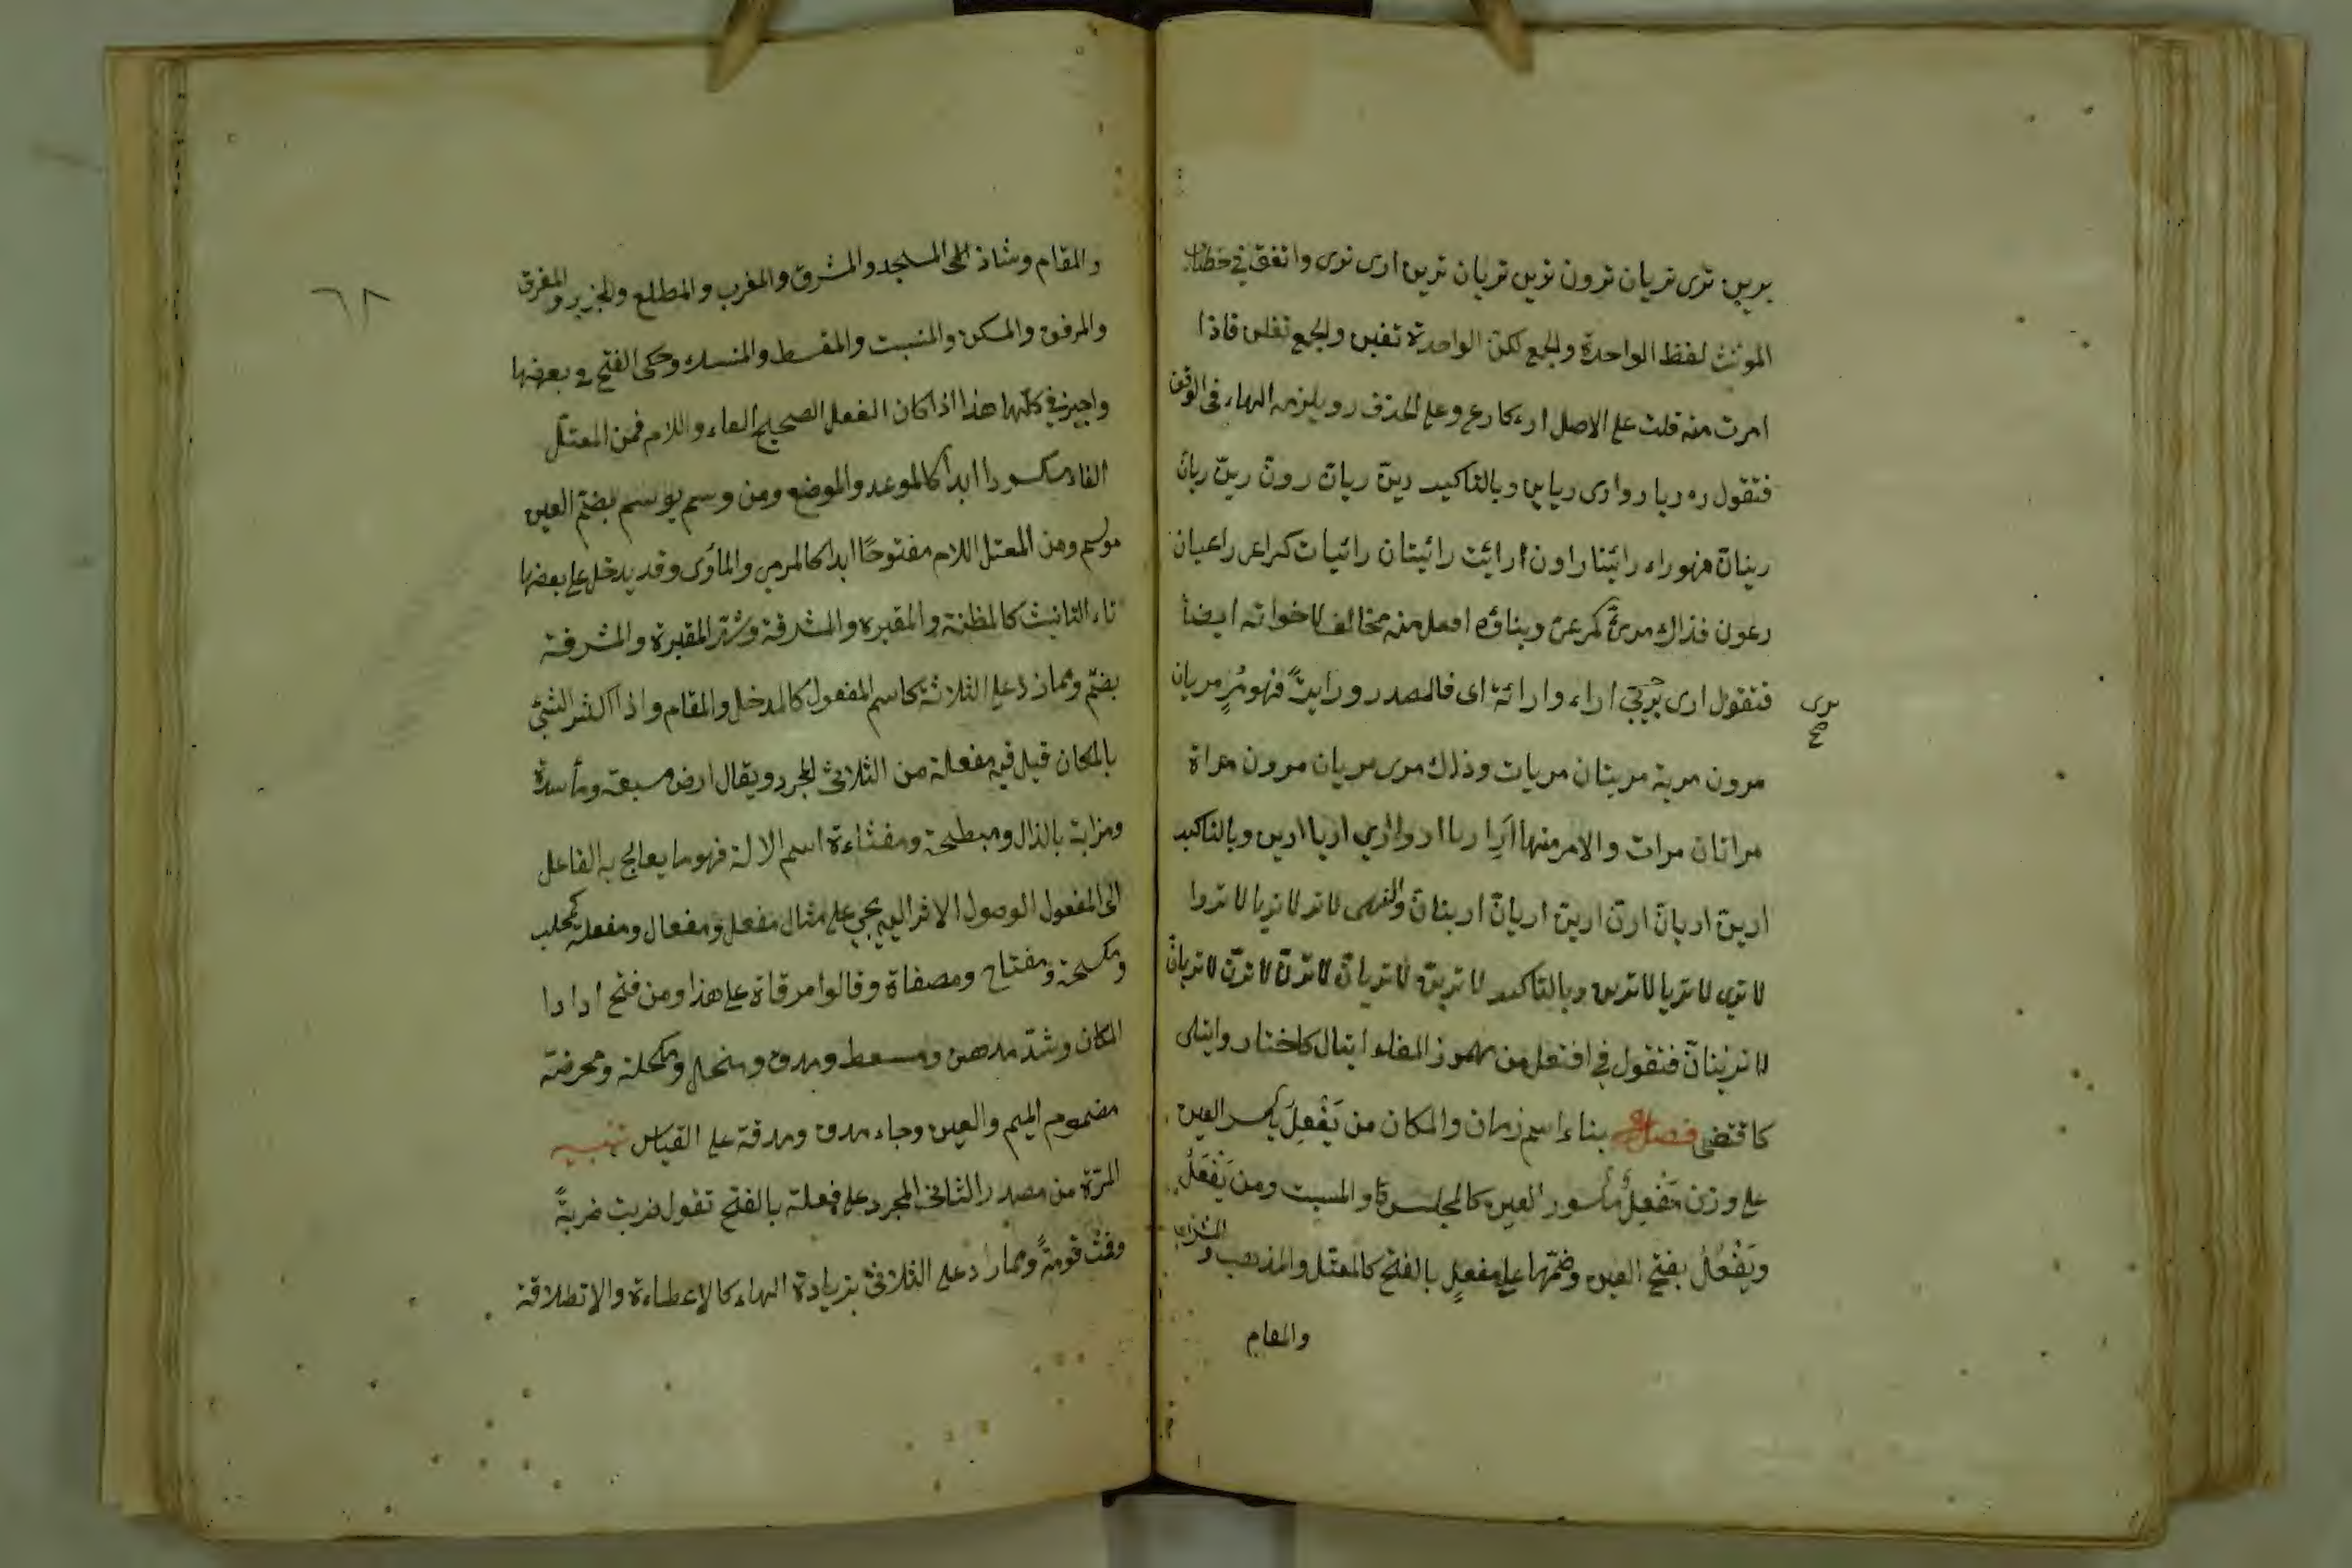 يرين ترى تريان ترون ترين تريان ترين ارى نرى واتفق في خطاب
المؤنث لفظ الواحدة والجمع لكن الواحدة تفين والجمع تفلن فاذا
امرت منه قلت على الاصل ارء كارع وعلى الحذف ر ويلزمه الهاء في الوقف
فتقول ره ريا روا رى ريا رين وبالتاكيد رينّ ريانّ رونّ رينّ ريانّ
رينانّ فهو راء رائينا راون رائيت رائيتان رائيات كراع راعيان
رعون فذاك مرئي كمرعي وبناؤه افعل منه مخالف لاخواته ايضا
فتقول ارى يري اراء وارائة اى فالمصدر ورايت فهو مُرٍ مريان
يرى
صح
مرون مرية مريتان مريات وذلك مرى مريان مرون مراة
مراتان مرات والامر منها اَرِ اريا اروا اري اريا ارين وبالتاكيد
ارينّ اريانّ ارنّ ارينّ اريانّ ارينانّ والنهى لا تر لا تريا لا تروا
لا تري لا تريا لا ترين وبالتاكيد لا ترينّ لا تريانّ لا ترنّ لا ترنّ لا تريانّ
لا ترينانّ فتقول في افتعل من مهموز الفاء ايتال كاختار وايتلى
كاقتضى فصل بناء اسم زمان والمكان من يَفْعِلُ بكسر العين
على وزن مَفْعِلٌ مكسور العين كالمجلس والمبيت ومن يَفْعَلُ
ويَفْعُلُ بفتح العين وضمّها على مفعلٍ بالفتح كالمقتل والمذهب والمشرب
والمقام
٦٨
والمقام وشاذ المسجد والمشرق والمغرب والمطلع والمجزر والمفرق
والمرفق والمسكن والمنبت والمقسط والمنسك وحكى الفتح في بعضها
واجيز في كلّها هذا اذا كان الفعل الصحيح الفاء واللام فمن المعتلّ
الفاء مكسورا ابدا كالموعد والموضع ومن وسم يوسم بضم العين
موسم ومن المعتل اللام مفتوحًا ابدا كالمرمى والمأوى وقد يدخل على بعضها
تاء التانيث كالمظنة والمقبرة والمشرقة وشذ المقبرة والمشرقة
بضم ومما زاد على الثلاثة كاسم المفعول كالمدخل والمقام واذا اكثر الشئ
بالمكان قيل فيه مفعلة من الثلاثى المجرد ويقال ارض مسبعة ومأسدة
ومزابة بالذال ومبطخة ومقثاءة اسم الالة فهو ما يعالج به الفاعل
الى المفعول الوصول الاثر اليه يجي على مثال مفعل ومفعال ومفعلة كمحلب
ومكسحة ومفتاح ومصفاة وقالوا مرقاة على هذا ومن فتح ارادا
المكان وشذّ مدهن ومسعط ومدق ومنخل ومكحلة ومحرضة
مضموم الميم والعين وجاء مدق ومدقة على القياس تنبيه
المرّة من مصدر الثلاثى المجرد على فعلة بالفتح تقول ضربت ضربةً
وقمت قومةً ومما زاد على الثلاثى بزيادة الهاء كالإعطاءة والانطلاقة